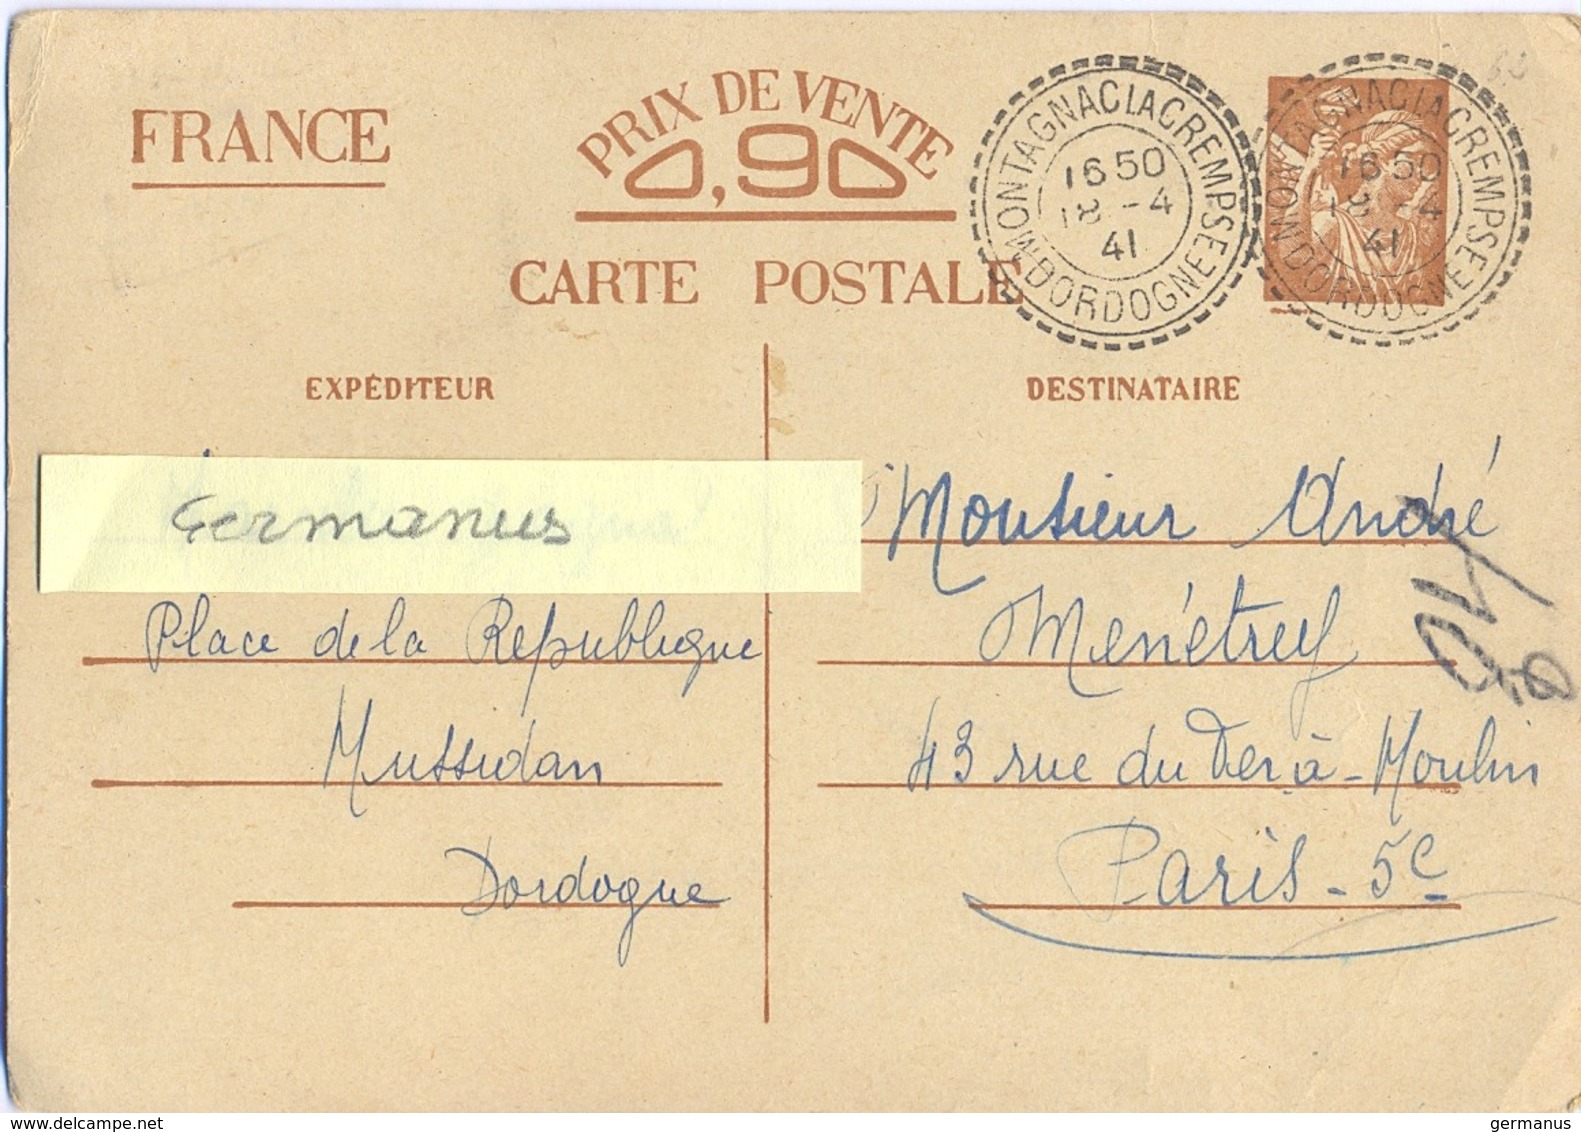 FRANCE
PRIX DE VENTE
0,90
CARTE POSTALE
MONTAGNAC LA CREMPSE
16 50
18 -4
41
DORDOGNE
MONTAGNAC LA CREMPSE
16 50
18 -4
41
DORDOGNE
EXPÉDITEUR
DESTINATAIRE
Germanus
Place de la Republique
Mussidan
Dordogne
Monsieur André
Menétrey
43 rue du Fer à-Moulin
Paris - 5e
www.delcampe.net
germanus